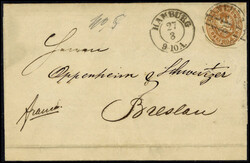 No 8
HAMBURG
27
8
9-10 A.
Herren
Oppenheim & Schweitzer
franco
Breslau